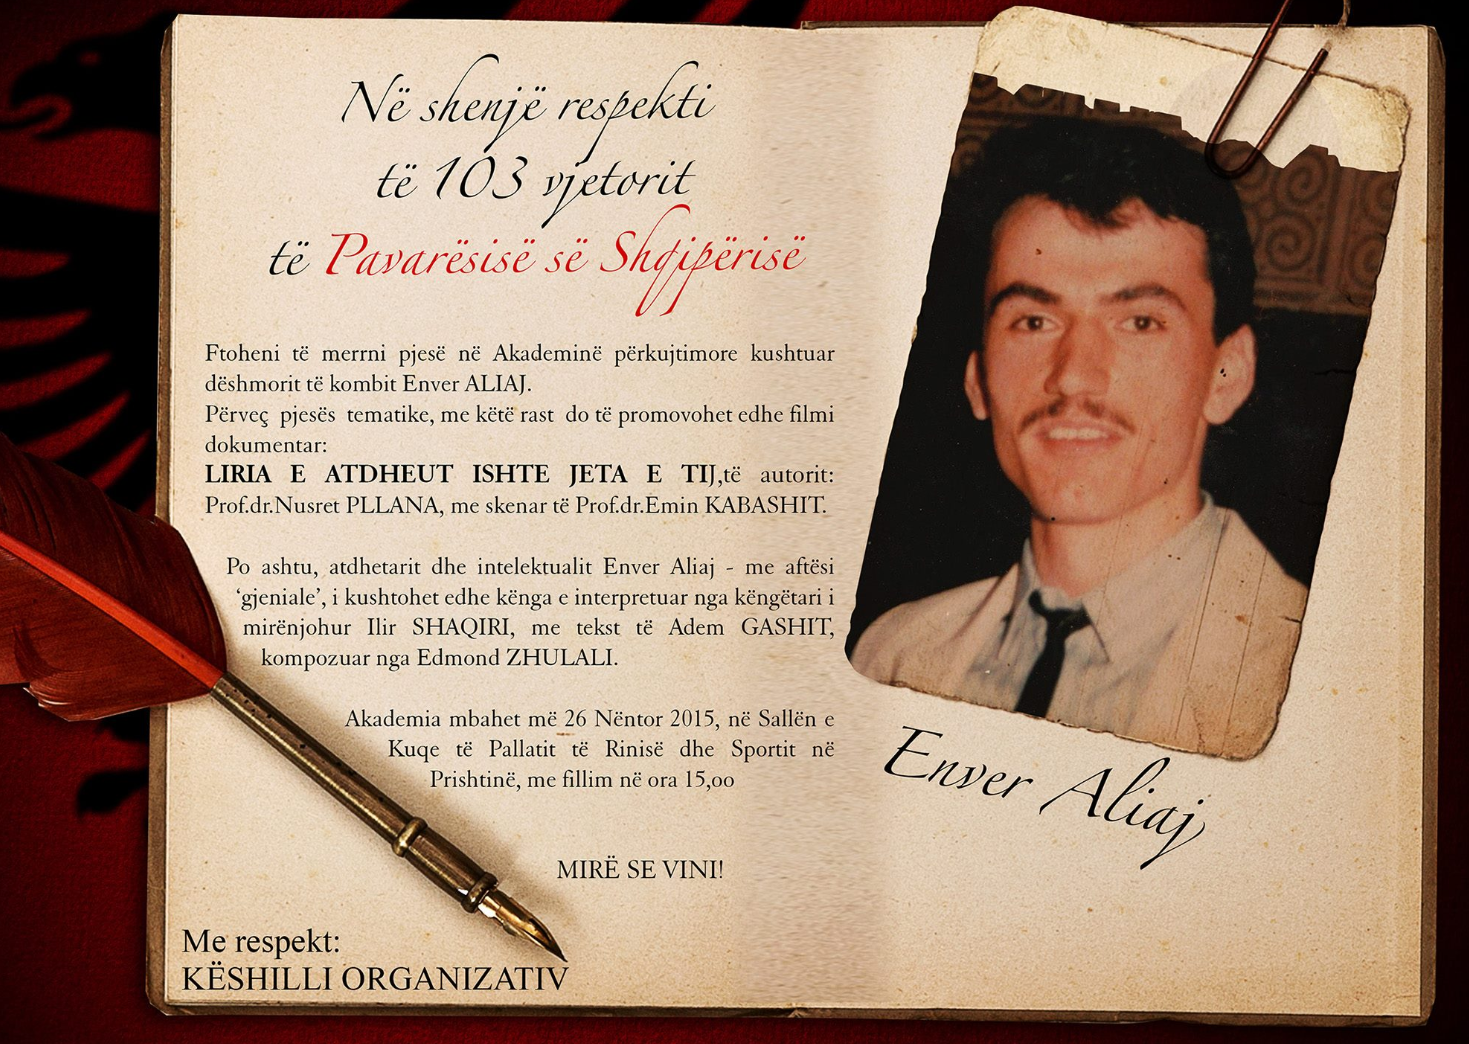 Në shenjë respekti
të 103 vjetorit
të Pavarësisë së Shqipërisë
Ftoheni të merrni pjesë në Akademinë përkujtimore kushtuar
dëshmorit të kombit Enver ALIAJ.
Përveç pjesës tematike, me këtë rast do të promovohet edhe filmi
dokumentar:
LIRIA E ATDHEUT ISHTE JETA E TIJ,të autorit:
Prof.dr.Nusret PLLANA, me skenar të Prof.dr.Emin KABASHIT.
Po ashtu, atdhetarit dhe intelektualit Enver Aliaj - me aftësi
‘gjeniale’, i kushtohet edhe kënga e interpretuar nga këngëtari i
mirënjohur Ilir SHAQIRI, me tekst të Adem GASHIT,
kompozuar nga Edmond ZHULALI.
Akademia mbahet më 26 Nëntor 2015, në Sallën e
Kuqe të Pallatit të Rinisë dhe Sportit në
Prishtinë, me fillim në ora 15,oo
MIRË SE VINI!
Me respekt:
KËSHILLI ORGANIZATIV
Enver Aliaj